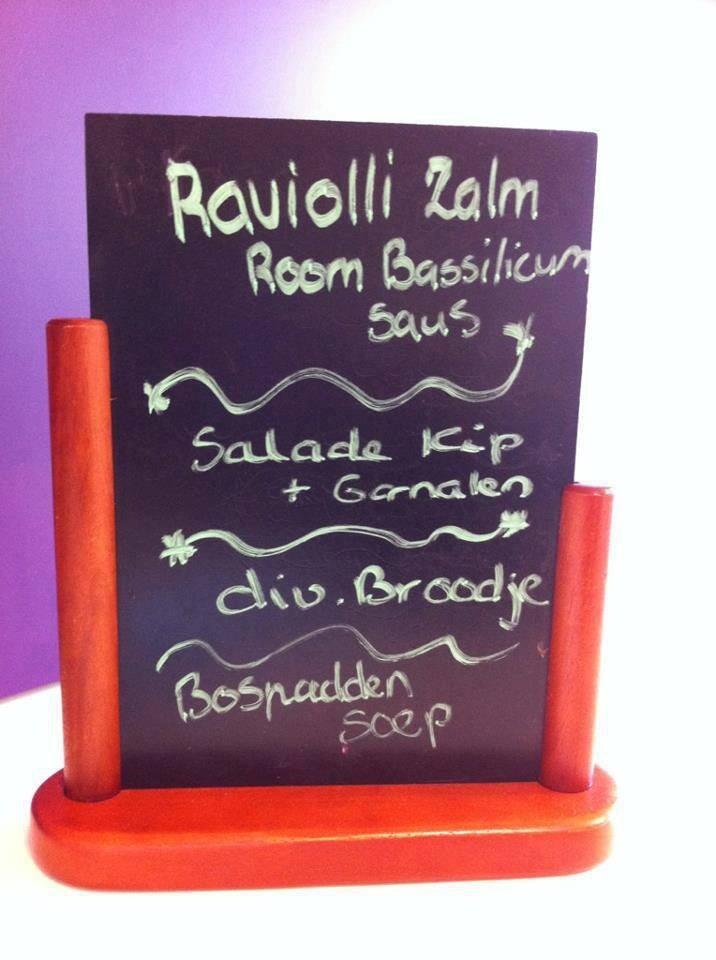 Raviolli Zalm
Room Bassilicum
saus
Salade Kip
+ Garnalen
div. Broodje
Bospadden
soep